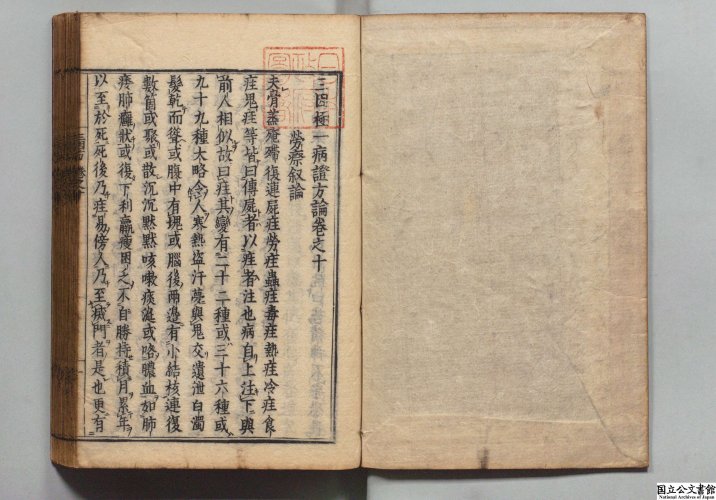 三因極一病證方論卷之十
勞瘵叙論
夫骨蒸殗殜復連屍疰勞疰蟲疰毒疰熱疰冷疰食
疰鬼疰等皆曰傳屍者以疰者注也病自上注下與
前人相似故曰疰其變有二十二種或三十六種或
九十九種大略令人寒熱盜汗夢與鬼交遺泄白濁
髮乾而聳或腹中有塊或腦後兩邊有小結核連復
數箇或聚或散沉沉默默咳嗽痰涎或咯膿血如肺
痿肺癰狀或復下利羸瘦困乏不自勝持積月累年
以至於死死後乃疰易傍人乃至滅門者是也更有
国立公文書館
National Archives of Japan